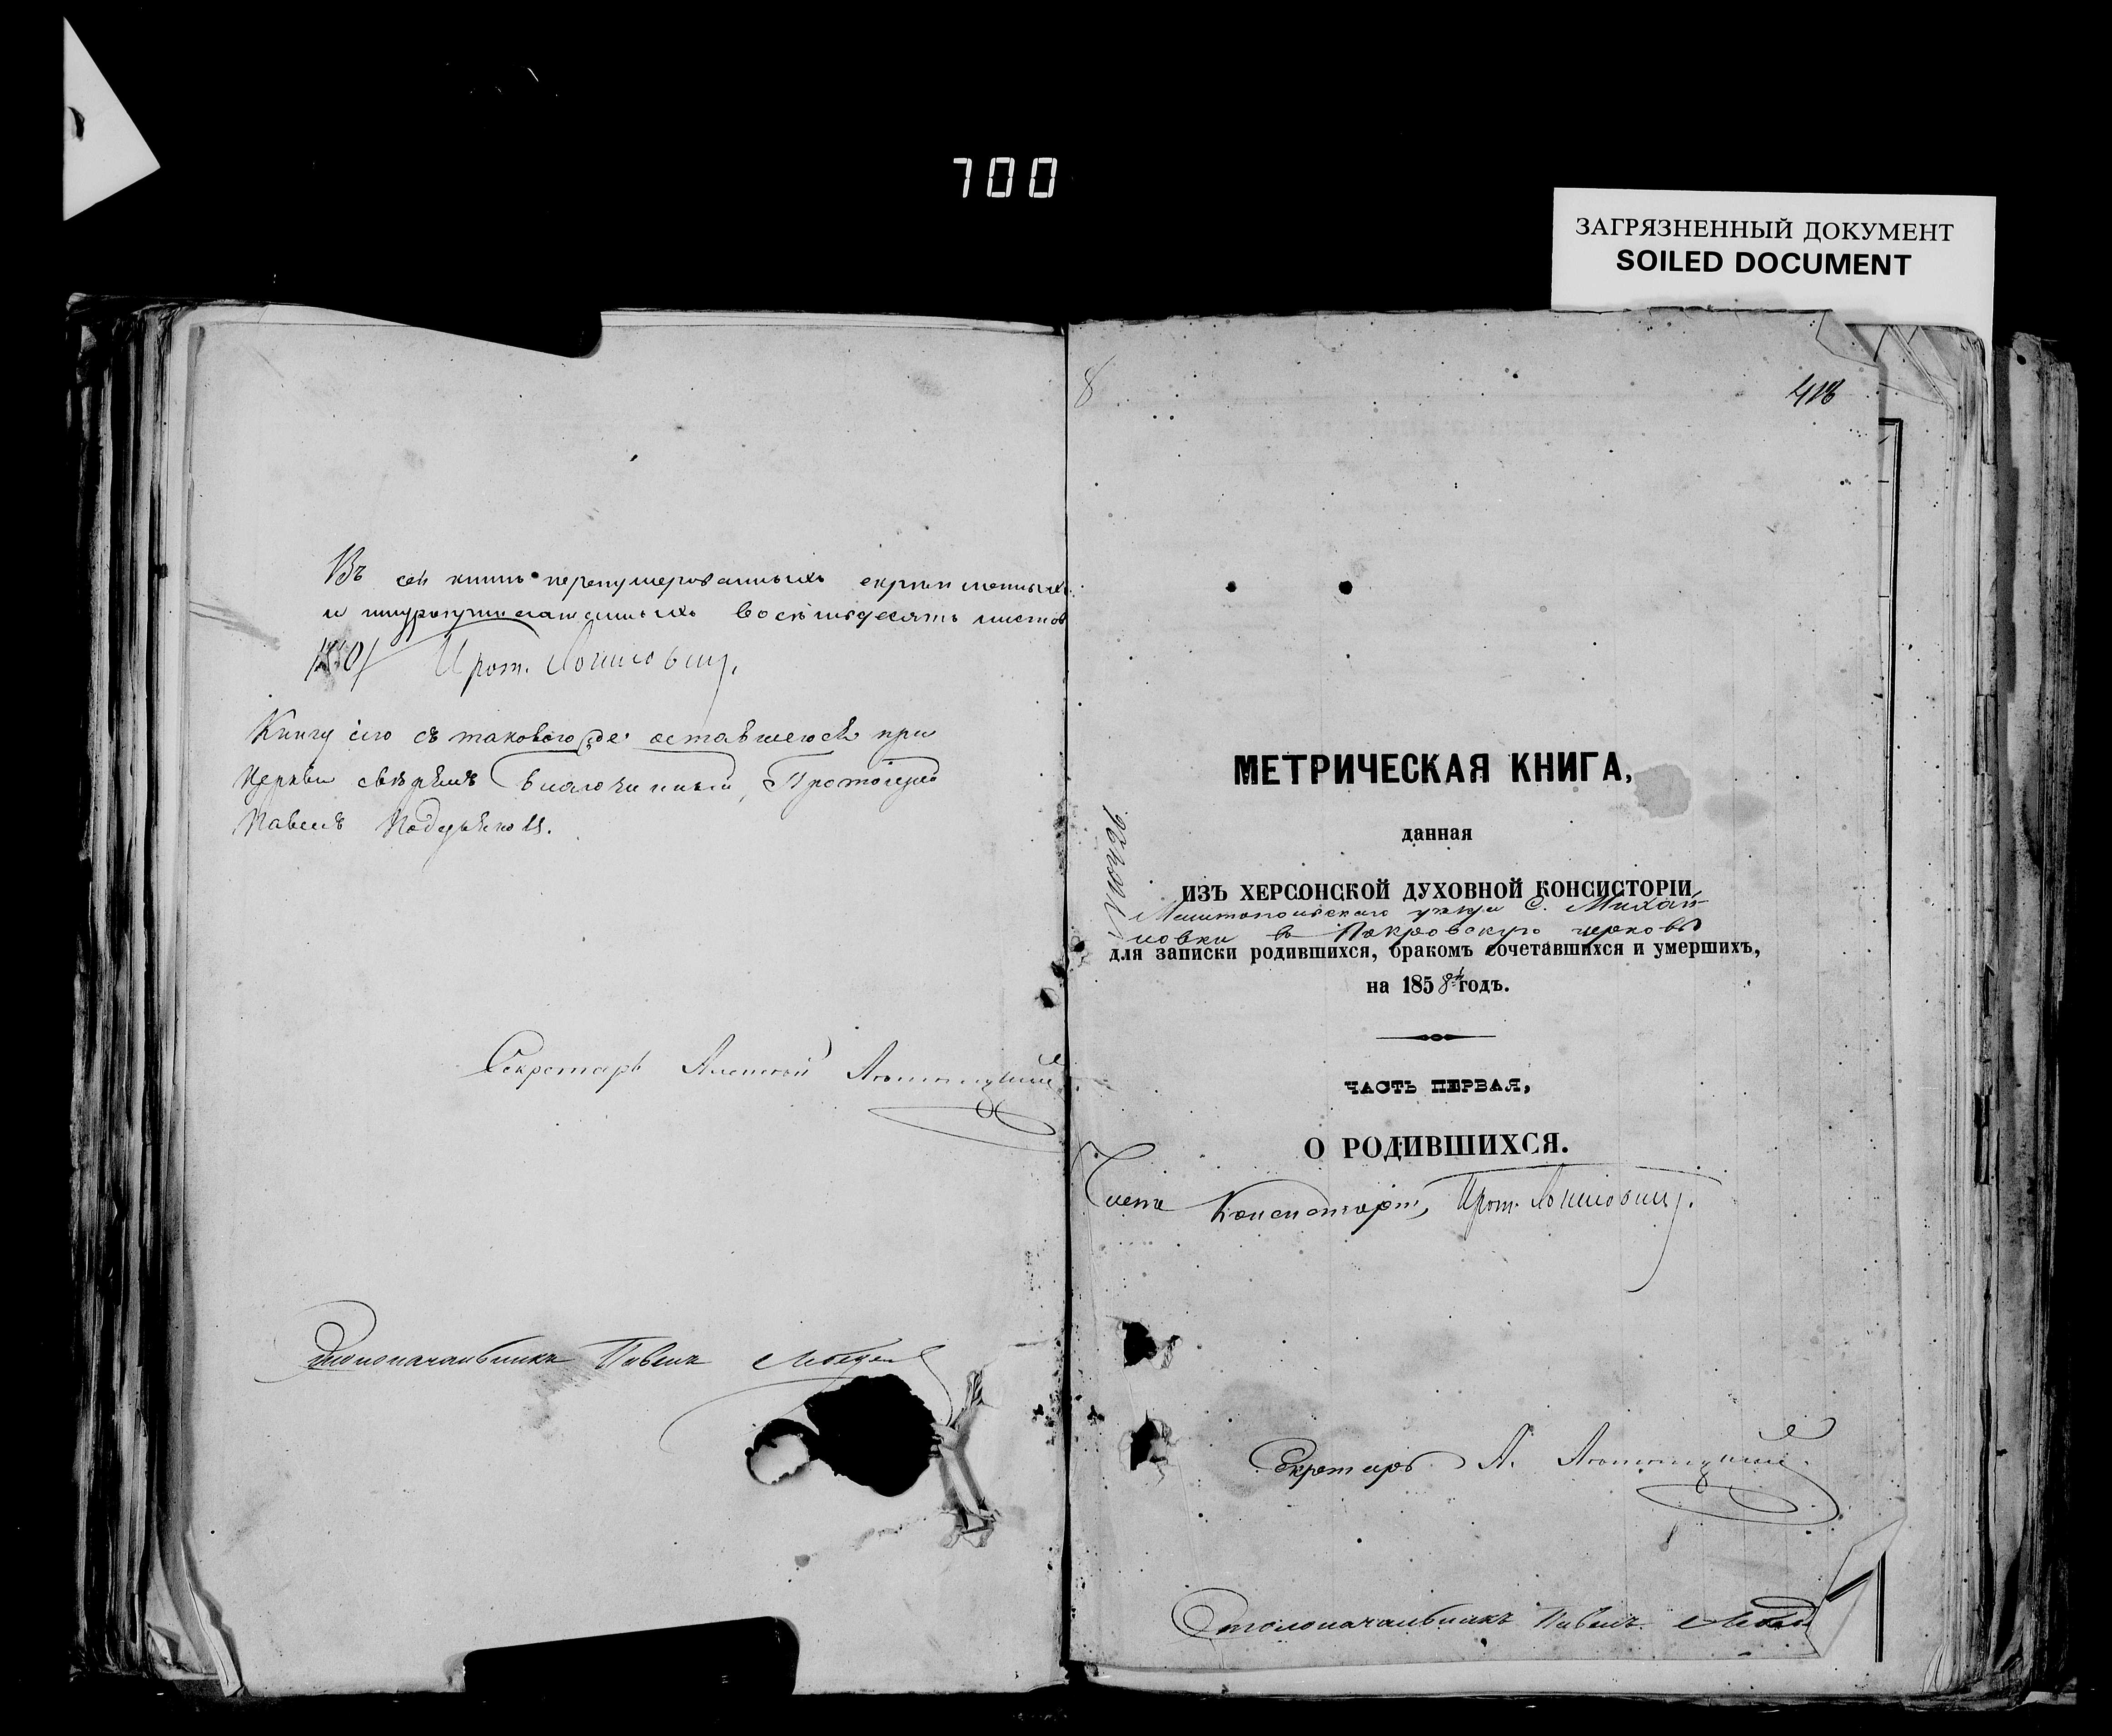 700
ЗАГРЯЗНЕННЫЙ ДОКУМЕНТ
SOILED DOCUMENT
Въ сей книгѣ перенумерованныхъ скрѣпленныхъ
и шнуро восемьдесятъ листов
/80/ Прот.
Книгу сію съ таковою же оставшеюся при
Церкви свѣрялъ Благочинный, Протоіерей
Павелъ
Секретарь Алексѣй
Столоначальникъ Павелъ
8
418
МЕТРИЧЕСКАЯ КНИГА,
данная
ИЗЪ ХЕРСОНСКОЙ ДУХОВНОЙ КОНСИСТОРІИ
Мелитопольскаго уѣзда С. Михай
ловки въ Покровскую церковь
для записки родившихся, бракомъ сочетавшихся и умершихъ,
на 1858й годъ.
ЧАСТЬ ПЕРВАЯ,
О РОДИВШИХСЯ.
Членъ Консисторіи, Прот.
Секретарь А.
Столоначальникъ Павелъ